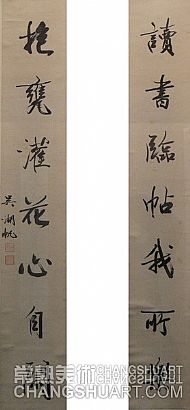 讀書臨帖我所
抱甕灌花心自
吳湖帆
常熟美術 CHANGSHUART
CHANGSHUART.COM